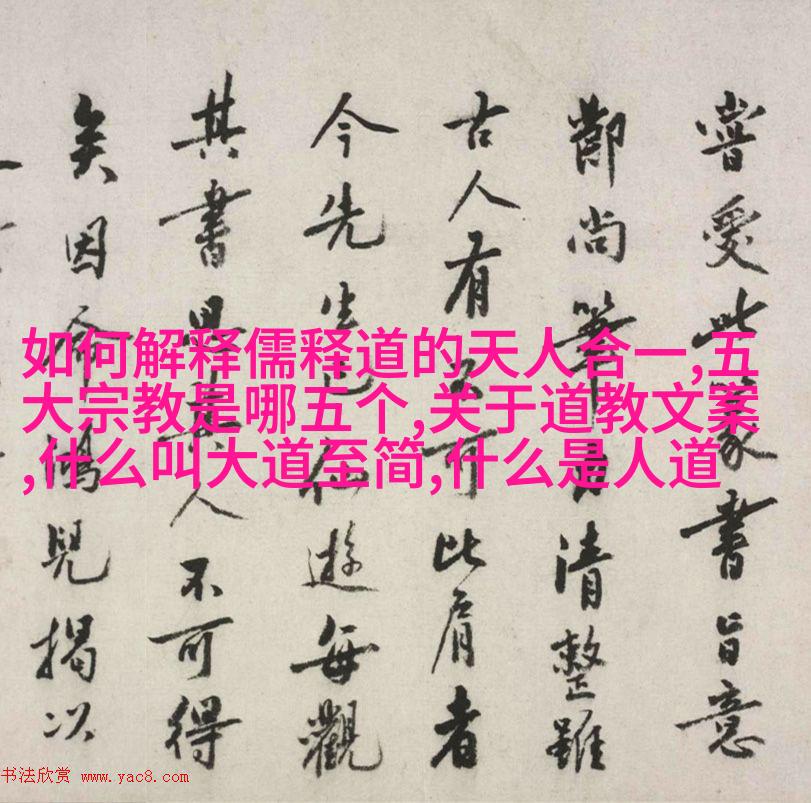 嘗受此篆書旨意
尚筆清整雖
古人有可比肩者
今先生已仙遊每觀
其書其人不可得
矣因命鴻兒揭以
如何解释儒释道的天人合一,五
大宗教是哪五个,关于道教文案
,什么叫大道至简,什么是人道
书法欣赏 www.yac8.com